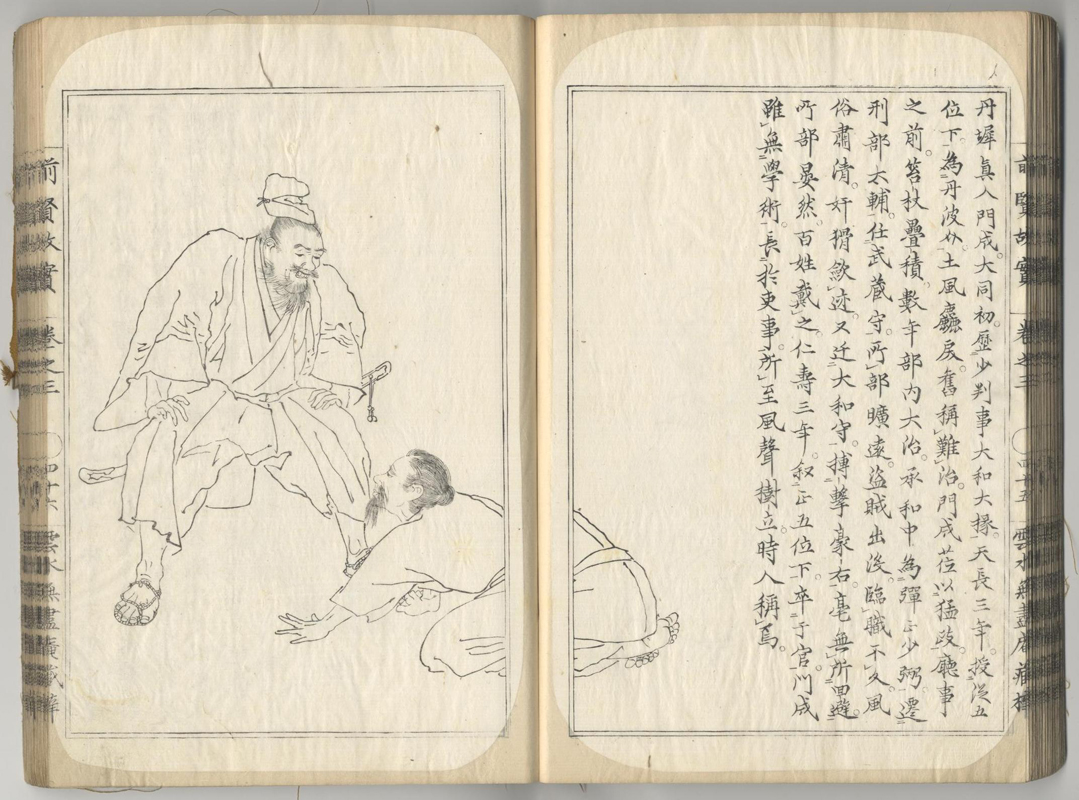 丹墀眞人門成。大同初。歷少判事大和大掾。天長三年。授從五
位下。爲丹波介。土風麤戾。舊稱難治。門成莅以猛政。廳事
之前。笞杖疊積。數年部内大治。承和中。爲彈正少弼。遷
刑部大輔。任武藏守。所部曠遠。盜賊出沒。臨職不久。風
俗肅清。奸猾歛迹。又迁大和守。搏擊豪右。亳無所回避。
所部晏然。百姓戴之。仁壽三年。叙正五位下。卒于官。門成
雖無學術。長於吏事。所至風聲樹立。時人稱焉。
前賢故實 卷之三 四十五 雲水無盡庵藏
前賢故實 卷之三 四十六 雲水無盡庵藏